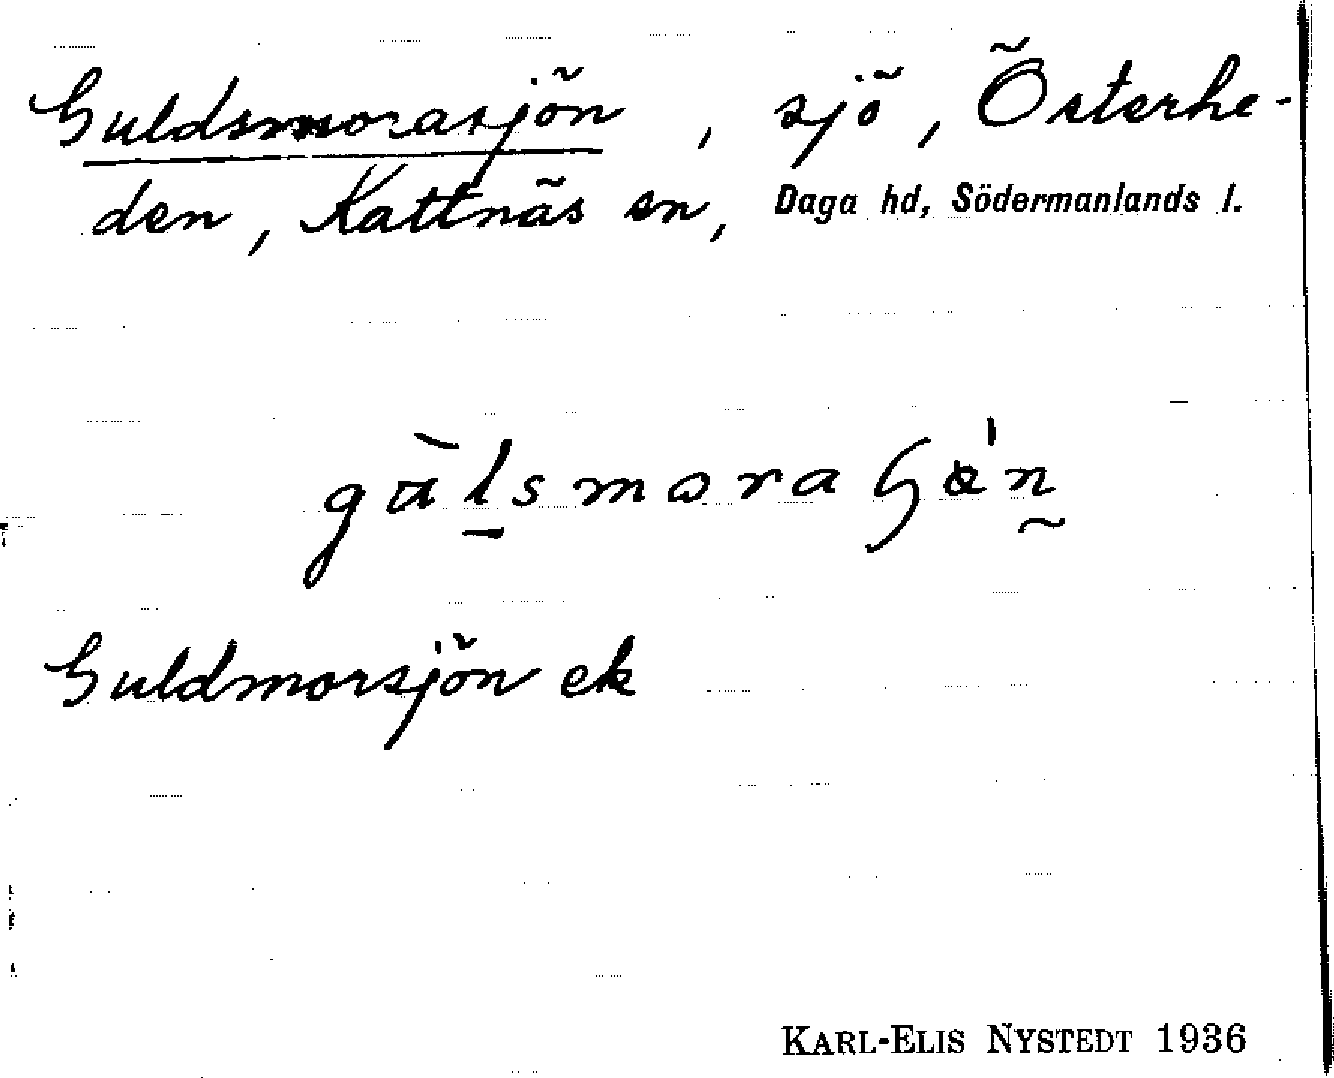 Guldsmorasjön, sjö, Österhe-
den, Kattnäs sn, Daga hd, Södermanlands l.
Guldmorsjön ek
KARL-ELIS NYSTEDT 1936